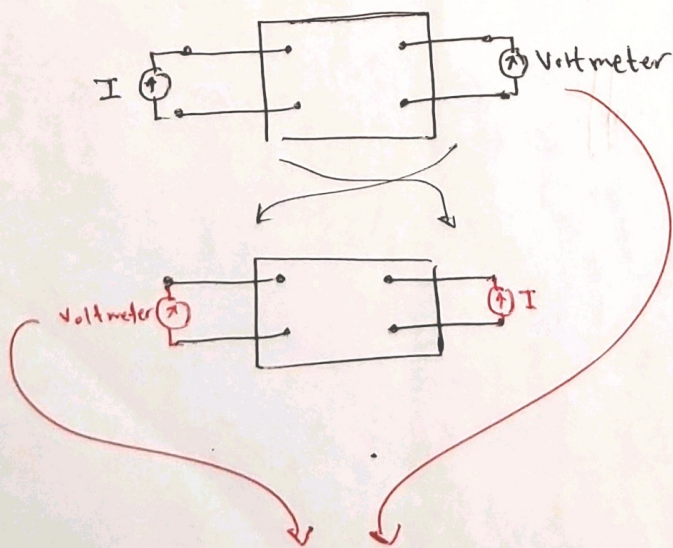 I
Voltmeter
Voltmeter
I